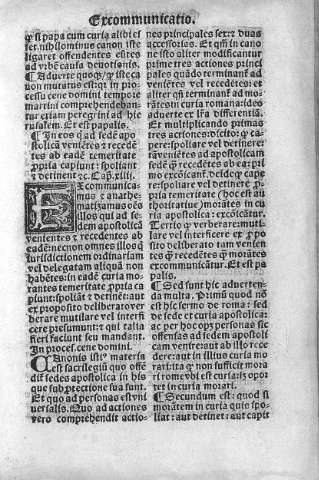 Excommunicatio.
qꝫ si papa cum curia alibi es
set. nihilominus canon iste
ligaret offendentes eūtes
ad vrbē causa deuotionis.
¶ Aduerte quoqꝫ / qꝫ iste ca
non mutatus est: qꝫ in pro
cessu cene domini tempore
martini comprehendeban
tur etiam peregrini ad hie
rusalem. Et est papalis.
¶ In eos q̄ ad sedē apo
stolicā veniētes ⁊ recedētes
ab eadē temeritate
ppria capiunt: spoliant
⁊ detinent ⁊c̄. Cap. xiiij.
Excommunica
mus ⁊ anathe
matizamus oēs
illos qui ad se
dem apostolicā
venientes ⁊ recedentes ab
eadē: necnon omnes illos q
iurisdictionem ordinariam
vel delegatam aliquā non
habētes: in eadē curia mo
rantes temeritate ppria ca
piunt: spoliāt ⁊ detinet: aut
ex proposito deliberato ver
berare mutilare vel interfi
cere presumunt: ⁊ qui talia
fieri faciunt seu mandant.
In procef. cene domini.
CAnonis isti⁹ materia
est sacrilegiū quo offē
dit̄ sedes apostolica in his
que sub ptectione sua sunt.
Et quo ad personas est vni
uersalis. Quo ad actiones
vero comprehendit actio-
nes principales sex: ⁊ duas
accessorias. Et qn̄ in cano
ne isto aliter modificantur
prime tres actiones princi
pales quādo terminant̄ ad
veniētes vel recedētes: et
aliter qn̄ terminant̄ ad mo
rātes in curia romana: ideo
aduerte ex lr̄a differentiā.
Et multiplicando primas
tres actiones: dicito: qꝫ ca
pere: spoliare vel detinere:
veniētes ad apostolicam
sedē qꝫ recedētes ab ea: pri
mo excōicant̄. deīde qꝫ cape
re: spoliare vel detinere p
pria temeritate (hoc est au
thoritatiue) morātes in cu
ria apostolica: excōicātur.
¶ Tertio qꝫ verberare: muti
lare vel interficere ex p̄po
sito deliberato tam venien
tes qꝫ recedentes qꝫ morātes
excommunicātur. Et est pa
palis.
¶ Sed sunt hic aduerten-
da multa. Primū quod nō
est hic sermo de roma: sed
de sede et curia apostolica:
ac per hoc qꝫ personas sic
offendas ad sedem apostoli
cam venire: aut ab illo rece
dere: aut in illius curia mo
rari: ita qꝫ non sufficit mora
ri rome vbi est curia: sꝫ opor
tet in curia morari.
¶ Secundum est: quod si
morātem in curia quis spo-
liat: aut detinet: aut capit